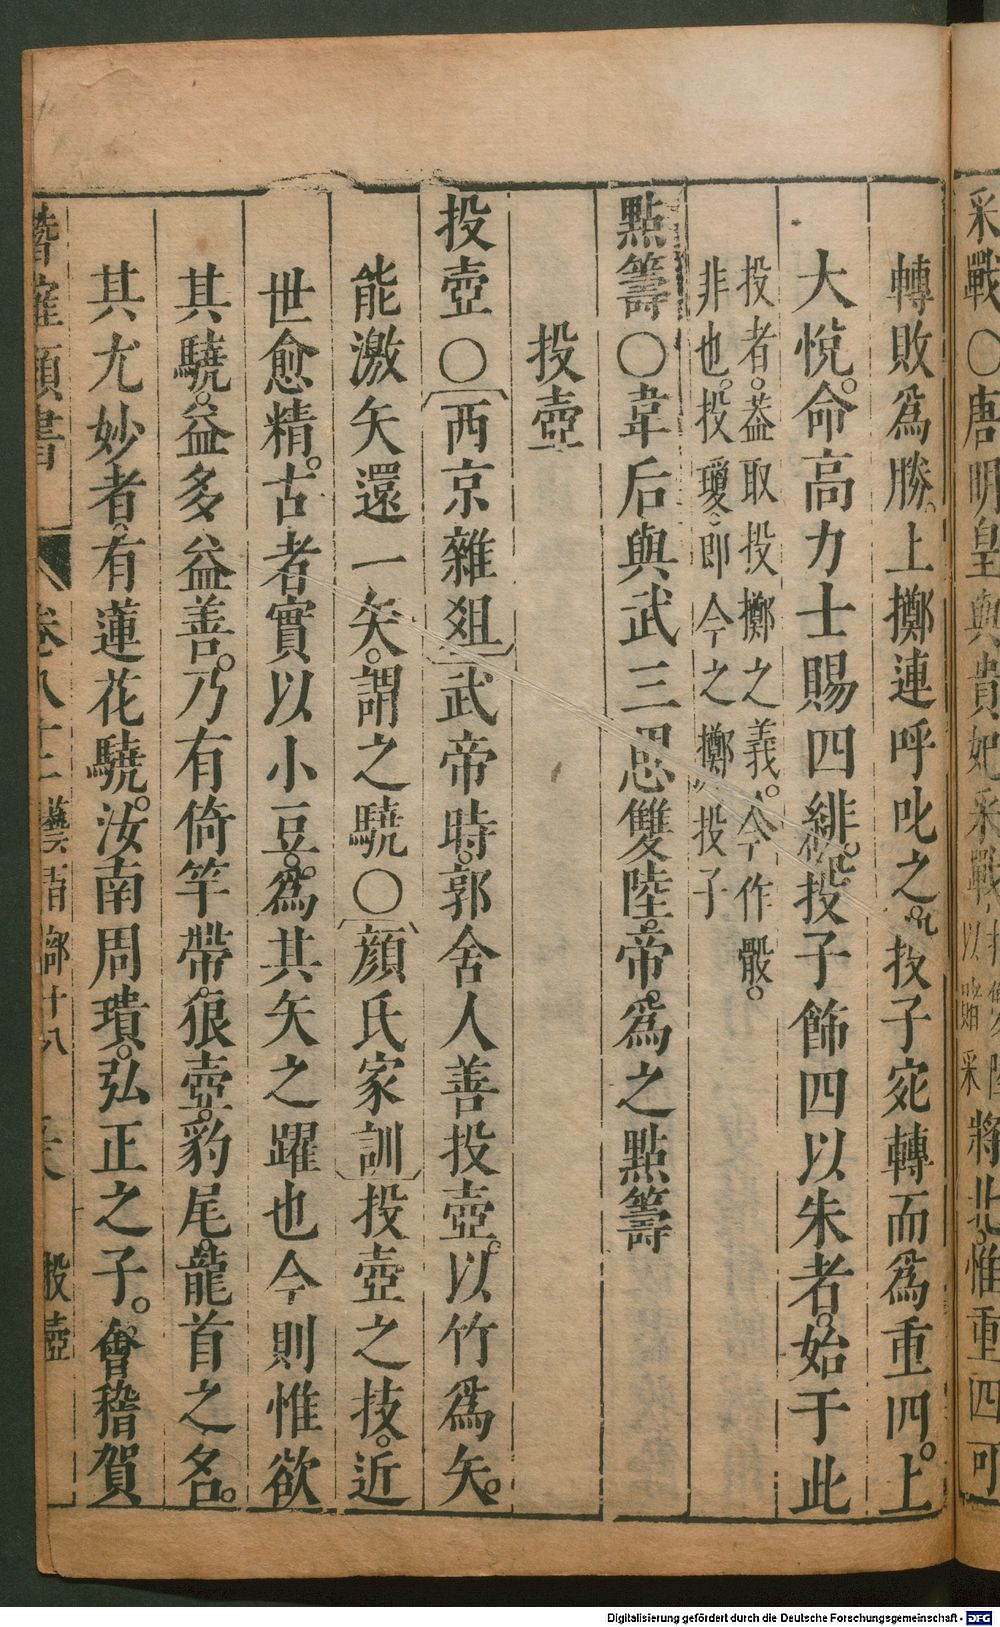 采戰〇唐明皇與貴妃采戰
將北惟重四可
轉敗爲勝。上擲連呼叱之。投子宛轉而爲重四。上
大悅。命高力士賜四緋。投子飾四以朱者。始于此
投者。葢取投擲之義。今作骰。
非也。投瓊。即今之擲投子
點籌〇韋后與武三思雙陸。帝爲之點籌
投壺
投壺〇〔西京雜爼〕武帝時。郭舍人善投壺。以竹爲矢。
能激矢還一矢。謂之驍〇〔顏氏家訓〕投壺之技。近
世愈精。古者實以小豆。爲其矢之躍也今則惟欲
其驍。益多益善。乃有倚竿帶。狼壺。豹尾。龍首之名。
其尤妙者。有蓮花驍。汝南周璝。弘正之子。會稽賀
卷八十二 藝術部十八 投壺
Digitalisierung gefördert durch die Deutsche Forschungsgemeinschaft - DFG